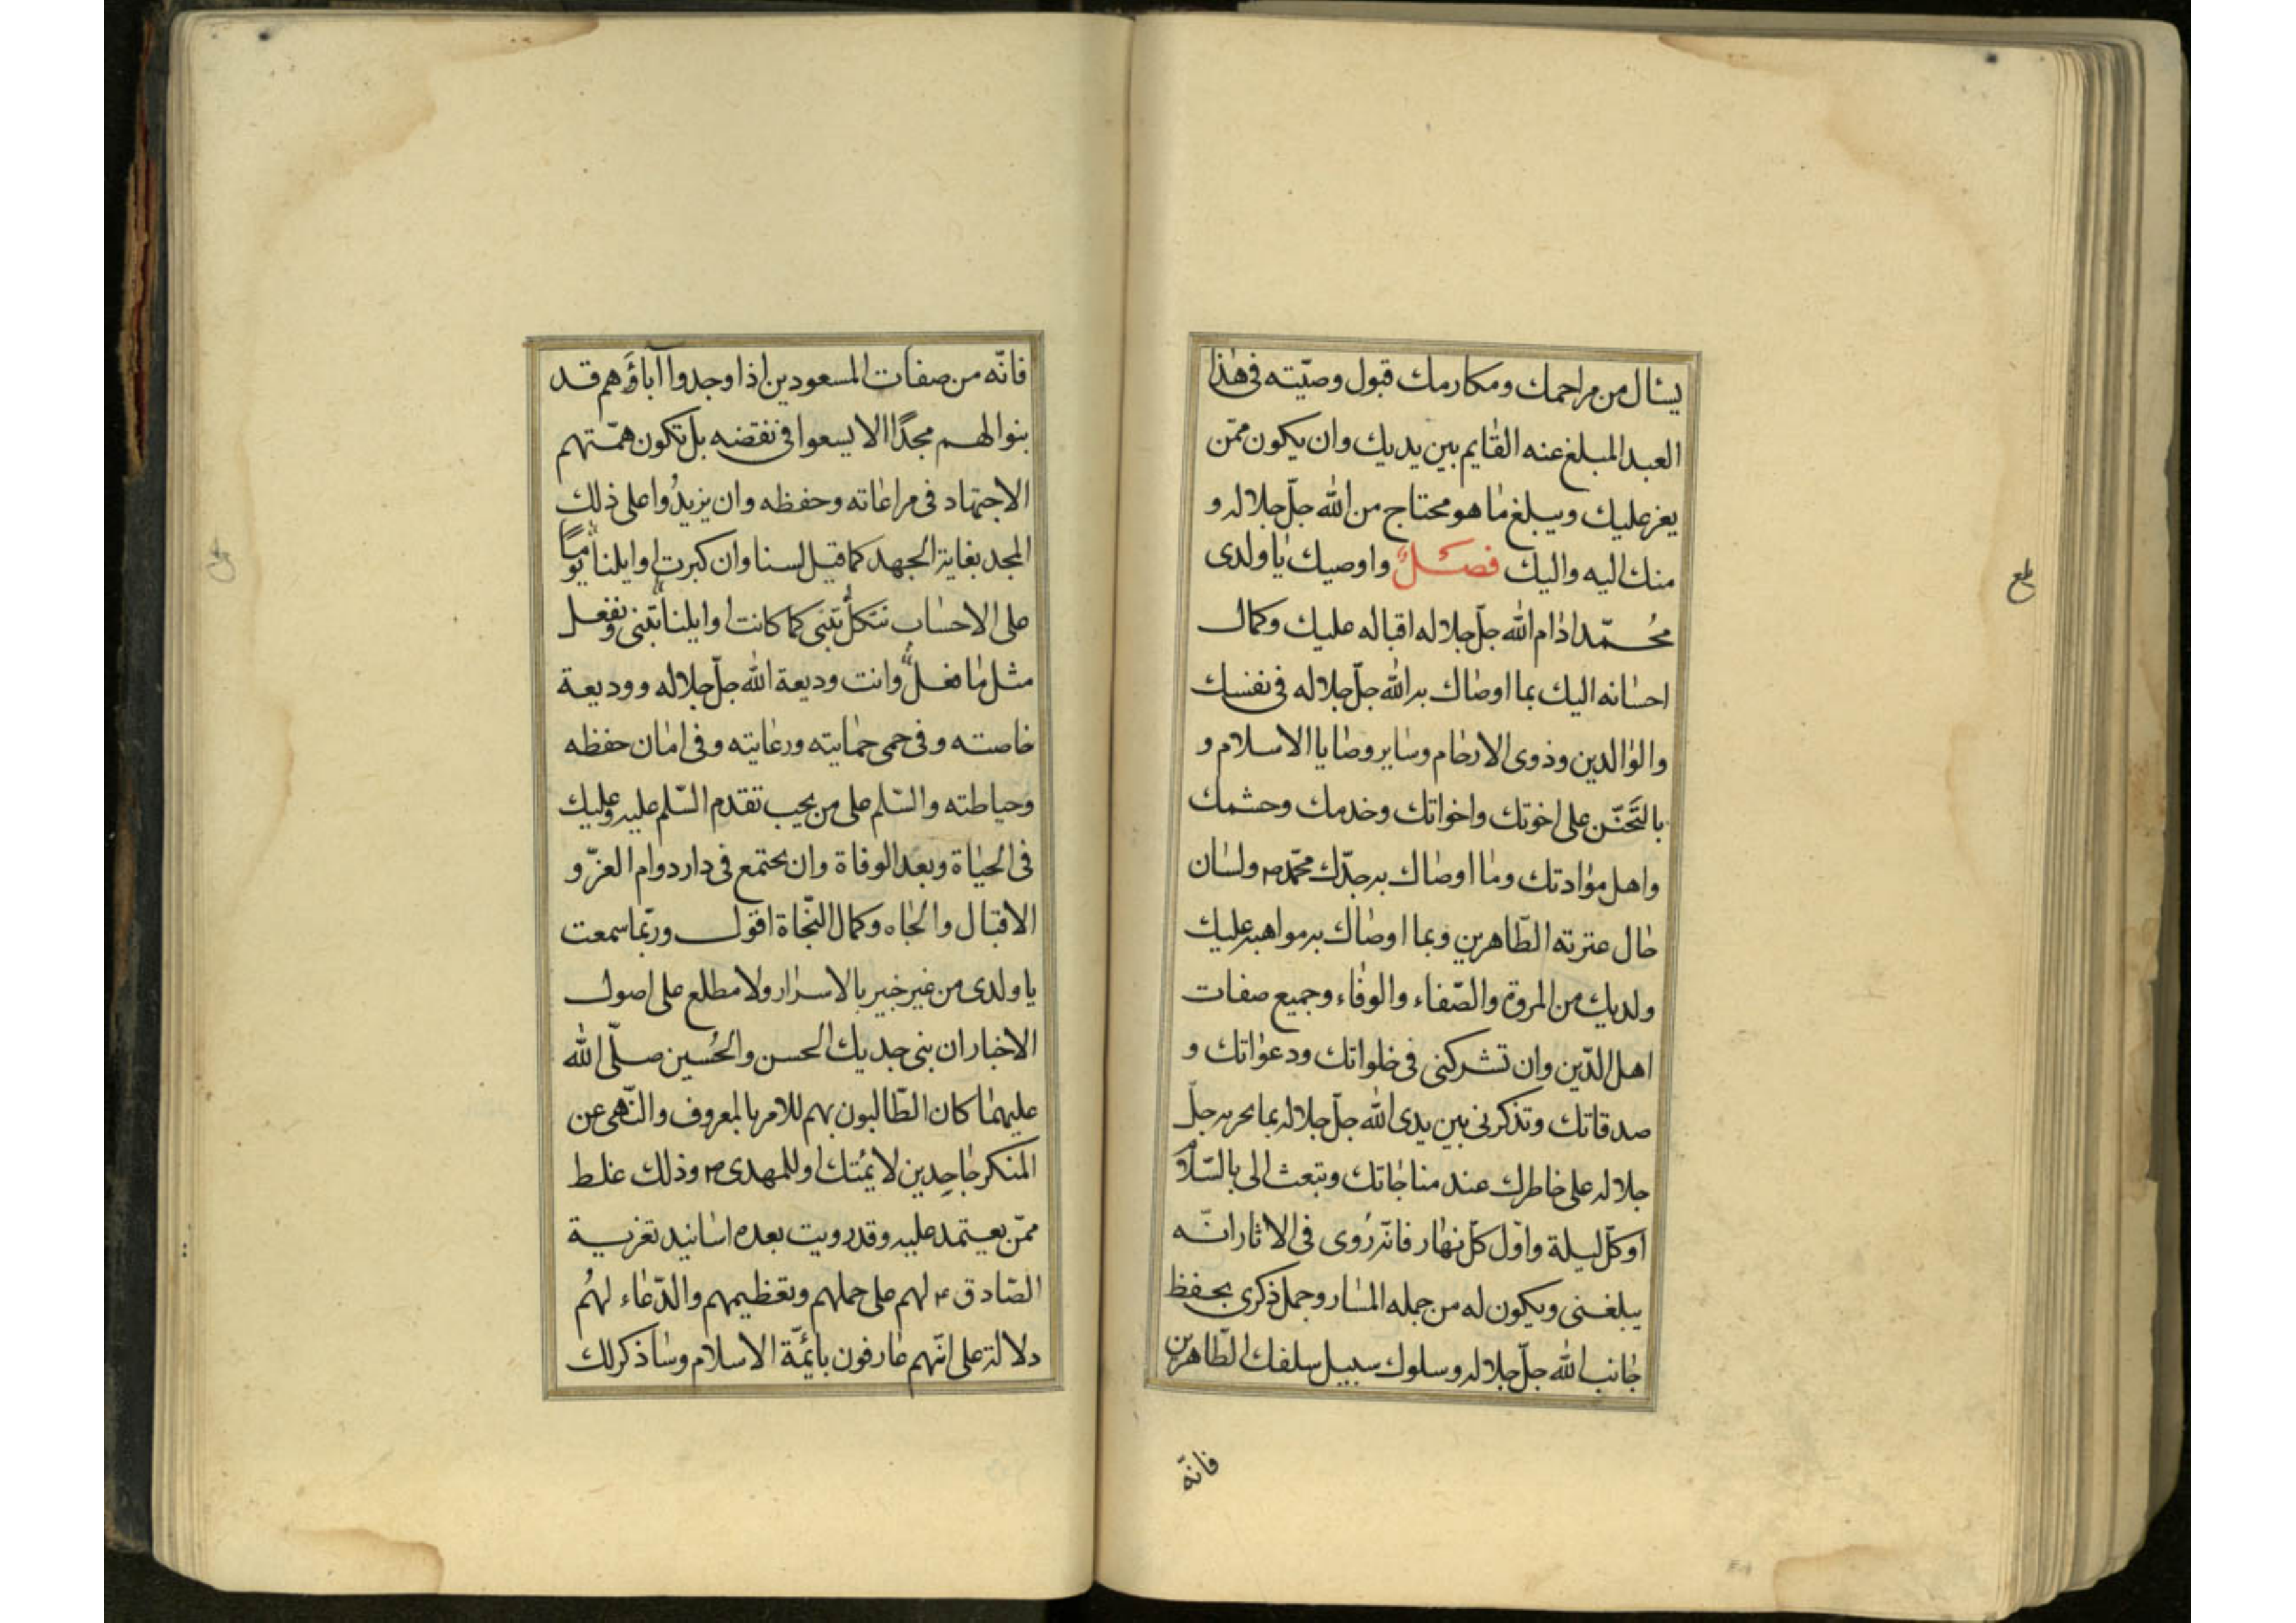 يسٔال من مراحمك ومكارمك قبول وصيّته فى هٰذا
العبد المبلغ عنه القٰايم بين يديك وان يكون ممّن
يعز عليك ويبلغ مٰا هو محتاج من الله جلّ جلاله و
منك اليه واليك فصل واوصيك يٰا ولدى
محُمّد ادٰام الله جلّ جلاله اقباله عليك وكمال
احسٰانه اليك بما اوصٰاك به الله جلّ جلاله فى نفسك
والوٰالدين وذوى الارحٰام وسٰاير وصٰايا الاسلام و
بالتَحنّن على اخوتك واخواتك وخدمك وحشمك
واهل موٰادتك ومٰا اوصٰاك به جدّك محمّد ص ولسٰان
حٰال عترته الطّاهرين وبما اوصٰاك به مواهبه عليك
ولديك من المروة والصّفاء والوفٰاء وجميع صفات
اهل الدّين وان تشركنى فى خلواتك ودعوٰاتك و
صدقاتك وتذكرنى بين يدى الله جلّ جلاله بما يحريه جلّ
جلاله على خاطرك عند مناجٰاتك وتبعث الى بالسّلام
اوكلّ ليلة واوّل كلّ نهٰار فانّه رُوى فى الاثار انّه
يبلغنى ويكون له من جمله المسٰار وجمل ذكرى بحفظ
جٰانب الله جلّ جلاله وسلوك سبيل سلفك الطّاهرين
فانّه
فانّه من صفٰات المسعودين اذا وجدوا آباؤَهم قد
بنوا لهم مجدًا الا يسعوا فى نقضه بل تكون همّتهم
الاجتهاد فى مراعٰاته وحفظه وان يزيدُوا على ذلك
المجد بغاية الجهد كما قيل لسنا وان كبرت اوايلنا يومًا
على الاحسٰاب نتكل تبنى كما كانت اوايلنا تبنى ونفعل
مثل مٰا فعلوا وانت وديعة الله جلّ جلاله ووديعة
خاصته وفى حمى حمٰايته ورعٰايته وفى امٰان حفظه
وحياطته والسّلم على من يجب تقدم السّلم عليه وعليك
فى الحيٰاة وبعد الوفاة وان يجتمع فى دار دوام العزّ و
الاقبال والجٰاه وكمال النّجاة اقول وربّما سمعت
يا ولدى من غير خبير بالاسرٰار ولا مطلع على اصول
الاخبار ان بنى جديك الحسن والحُسين صلّى الله
عليهمٰا كان الطّالبون بهم للامر بالمعروف والنّهى عن
المنكر جٰاحِدين لائمتك او للمهدى ص وذلك غلط
ممّن يعتمد عليه وقد رويت بعده اسٰانيد تعزية
الصّادق ع لهم على حملهم وتعظيمهم والدّعٰاء لهُم
دلالة على انّهم عٰارفون بائمّة الاسلام وسٰاذكر لك